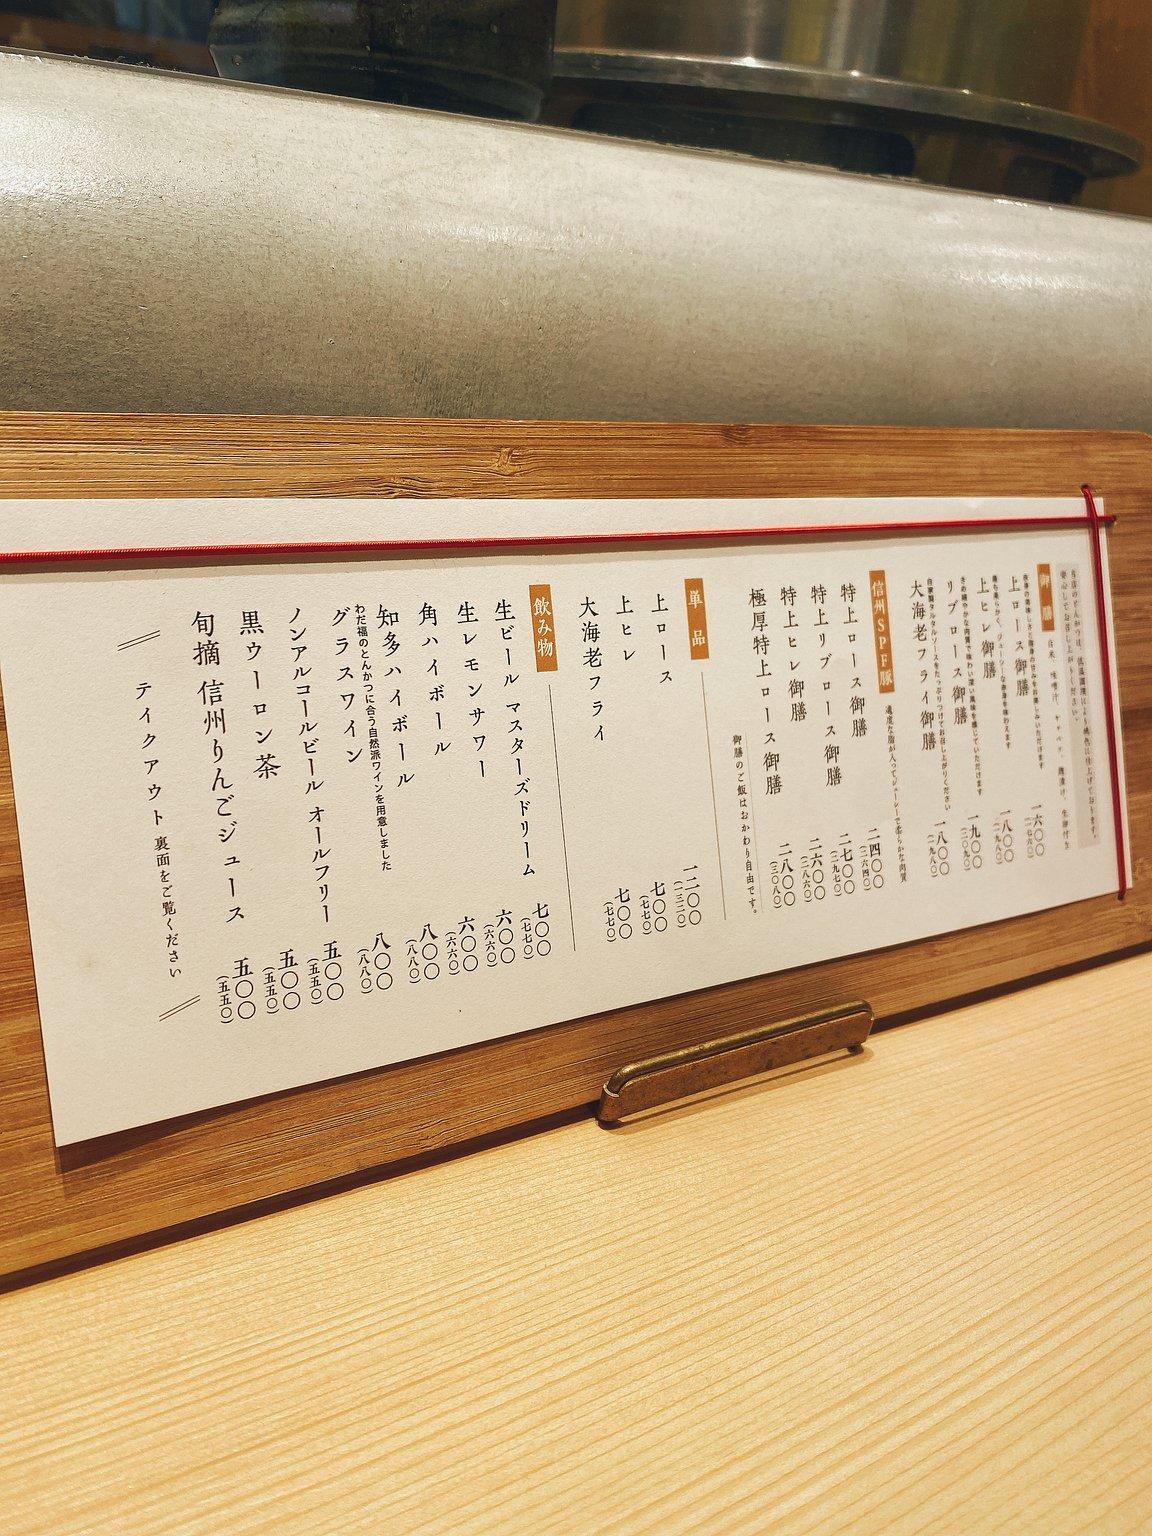 当店のとんかつは、低温調理により桃色に仕上げております。
安心してお召し上がりください。
御膳 白米 味噌汁 キャベツ
上ロース御膳 一六〇〇
(一七六〇)
上ヒレ御膳 一八〇〇
(一九八〇)
柔らかく、ジューシーな赤身を味わえます
リブロース御膳 一九〇〇
(二〇九〇)
きめ細やかな肉質で味わい深い風味を感じていただけます
大海老フライ御膳 一八〇〇
(一九八〇)
自家製タルタルソースをたっぷりつけてお召し上がりください
信州SPF豚 適度な脂が入ってジューシーで柔らかな肉質
特上ロース御膳 二四〇〇
(二六四〇)
特上リブロース御膳 二七〇〇
(二九七〇)
特上ヒレ御膳 二六〇〇
(二八六〇)
極厚特上ロース御膳 二八〇〇
(三〇八〇)
御膳のご飯はおかわり自由です。
単品
上ロース 一二〇〇
(一三二〇)
上ヒレ 七〇〇
(七七〇)
大海老フライ 七〇〇
(七七〇)
飲み物
生ビール マスターズドリーム 七〇〇
(七七〇)
生レモンサワー 六〇〇
(六六〇)
角ハイボール 六〇〇
(六六〇)
知多ハイボール 八〇〇
(八八〇)
グラスワイン 八〇〇
(八八〇)
わだ福のとんかつに合う自然派ワインを用意しました
ノンアルコールビール オールフリー 五〇〇
(五五〇)
黒ウーロン茶 五〇〇
(五五〇)
旬摘 信州りんごジュース 五〇〇
(五五〇)
テイクアウト 裏面をご覧ください